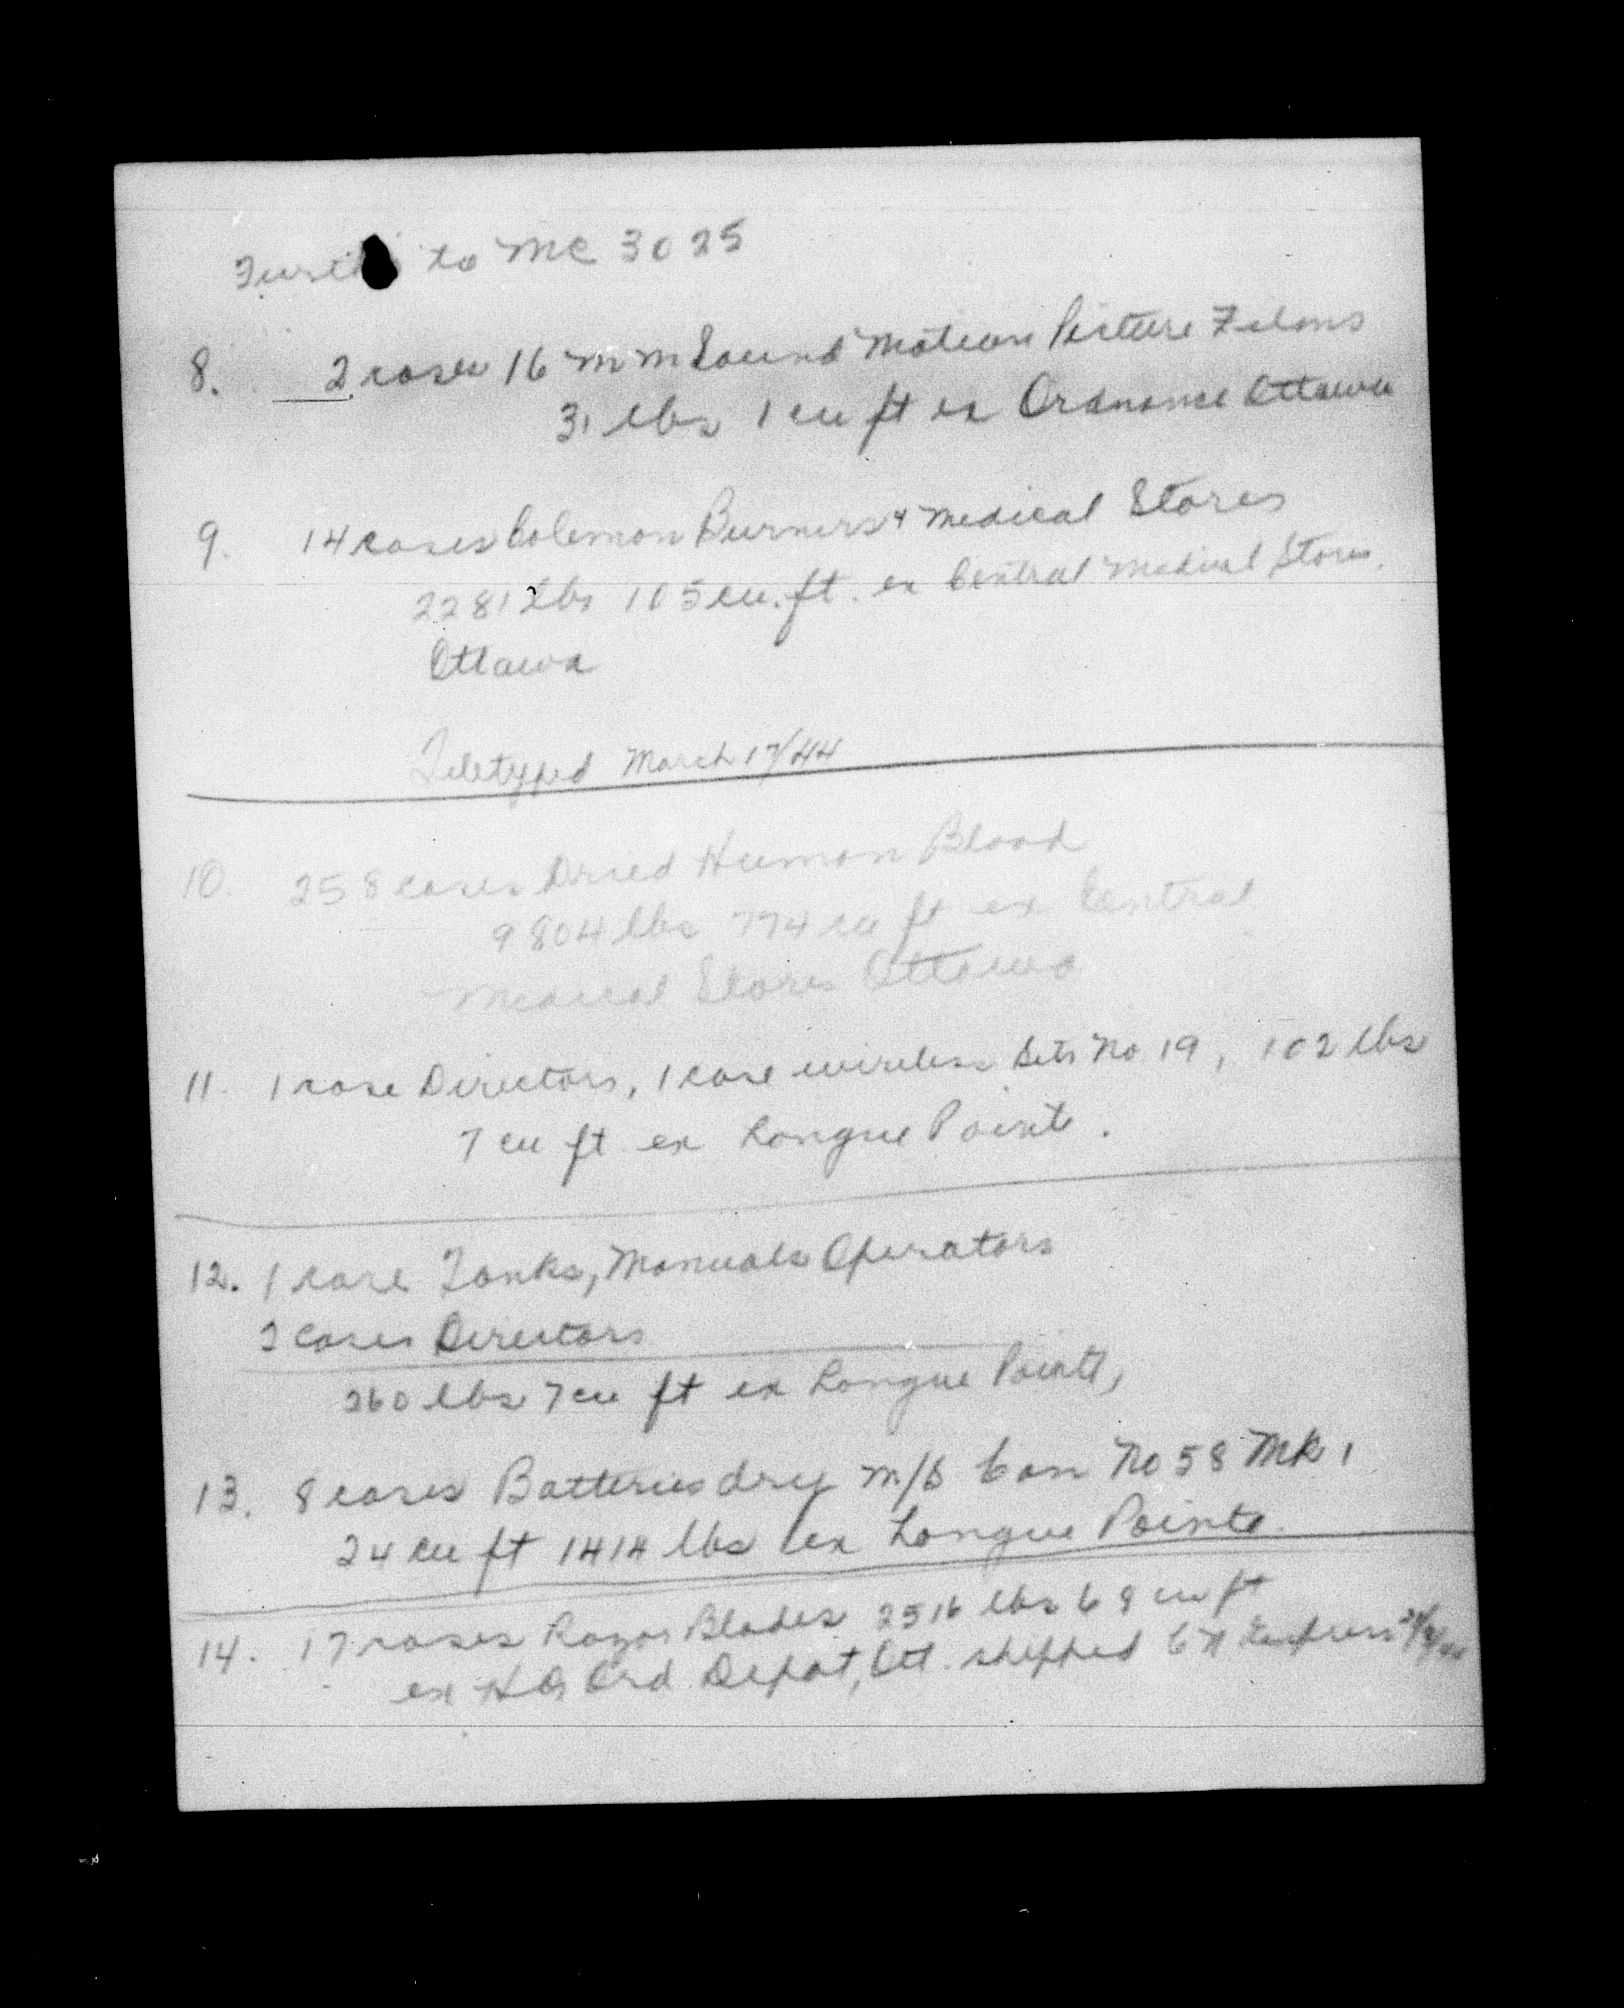 to MC 3025
8. 2 cases 16 mm Sound Motion Picture Films
31 lbs 1 cu ft ex Ordnance Ottawa
9. 14 cases Coleman Burners & Medical Stores
2281 lbs 105 cu. ft. ex Central Medical Stores,
Ottawa
Teletyped March 17/44
10. 258 cases Dried Human Blood
9804 lbs 774 cu ft ex Central
Medical Stores Ottawa
11. 1 case Directors, 1 case wireless Sets No 19, 102 lbs
7 cu ft ex Longue Pointe.
12. 1 case Tanks, Manuals Operators
2 cases Directors
260 lbs 7 cu ft ex Longue Pointe,
13. 8 cases Batteries dry M/S Can No 58 Mk 1
24 cu ft 1414 lbs ex Longue Pointe
14. 17 cases Razor Blades 2516 lbs 68 cu ft
ex HQ Ord Depot, Ott. shipped CN Express